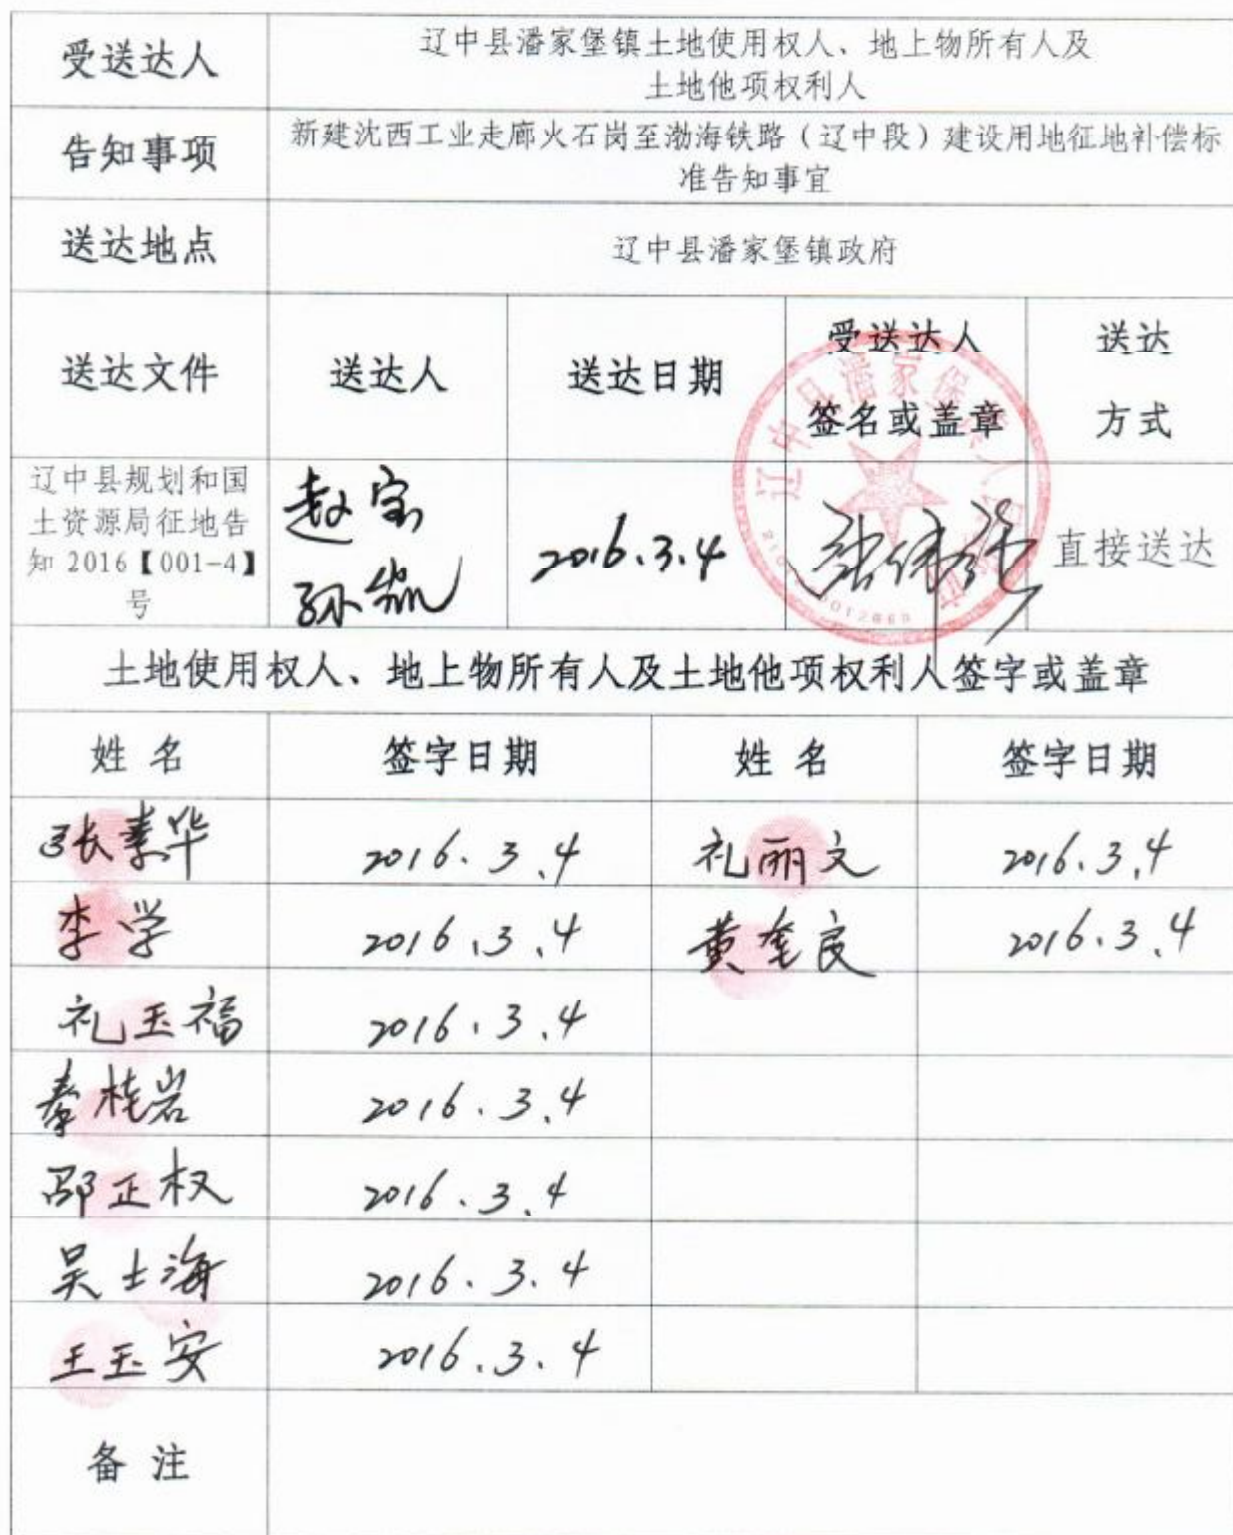 受送达人
辽中县潘家堡镇土地使用权人、地上物所有人及
土地他项权利人
告知事项
新建沈西工业走廊火石岗至渤海铁路（辽中段）建设用地征地补偿标
准告知事宜
送达地点
辽中县潘家堡镇政府
送达文件
送达人
送达日期
受送达人
签名或盖章
送达
方式
辽中县规划和国
土资源局征地告
知 2016【001-4】
号
赵宝
孙凯
2016.3.4
直接送达
辽中县潘家堡镇人民政府
土地使用权人、地上物所有人及土地他项权利人签字或盖章
姓 名
签字日期
姓 名
签字日期
张素华
2016.3.4
礼丽文
2016.3.4
李学
2016.3.4
黄奎良
2016.3.4
礼玉福
2016.3.4
秦桂岩
2016.3.4
邵正权
2016.3.4
吴士海
2016.3.4
王玉安
2016.3.4
备 注